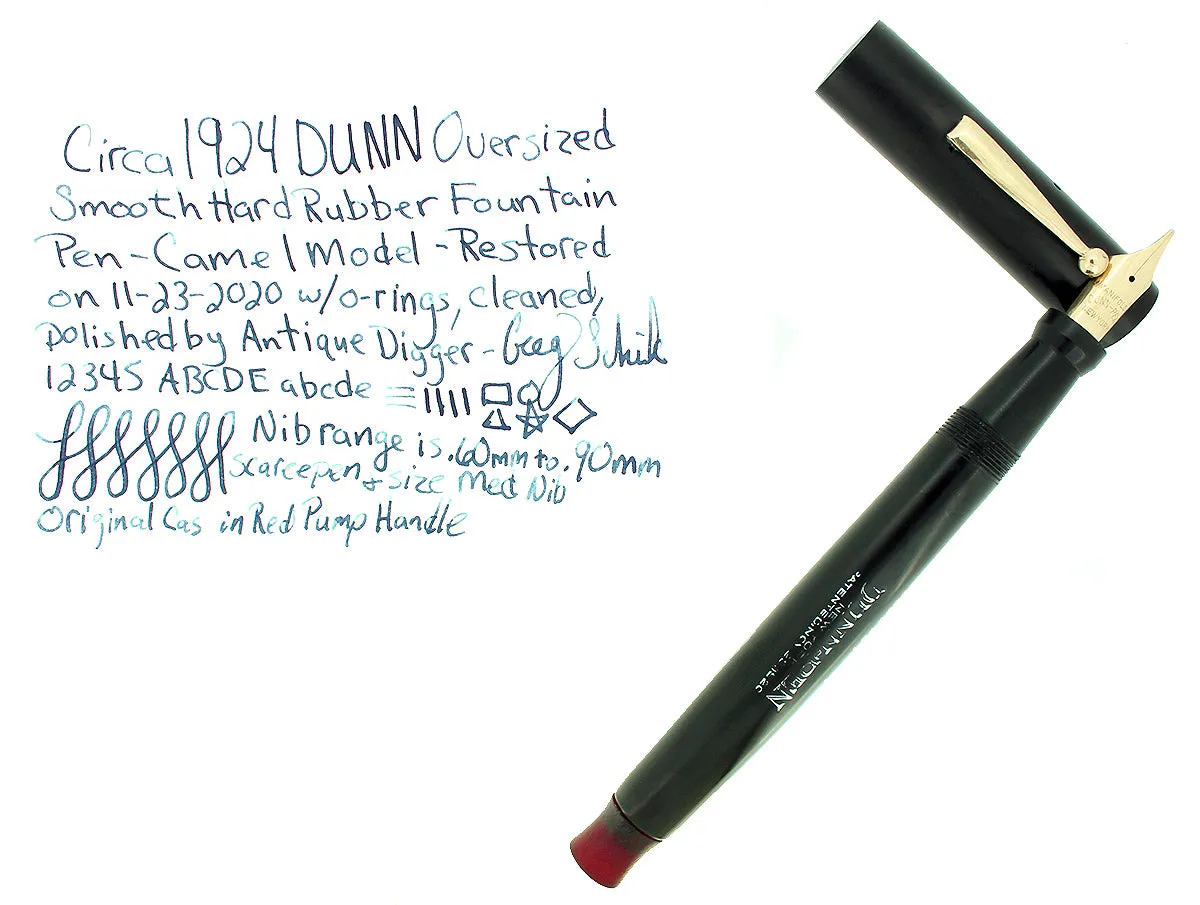 Circa 1924 DUNN Oversized
Smooth Hard Rubber Fountain
Pen - Camel Model - Restored
on 11-23-2020 w/o-rings, cleaned,
polished by Antique Digger - Greg
12345 ABCDE abcde
Nib range is .60mm to .90mm
scarce pen + size Med Nib
Original Cas in Red Pump Handle
DUNN-PEN
NEW YORK
PATENTED.NOV
NEW YORK